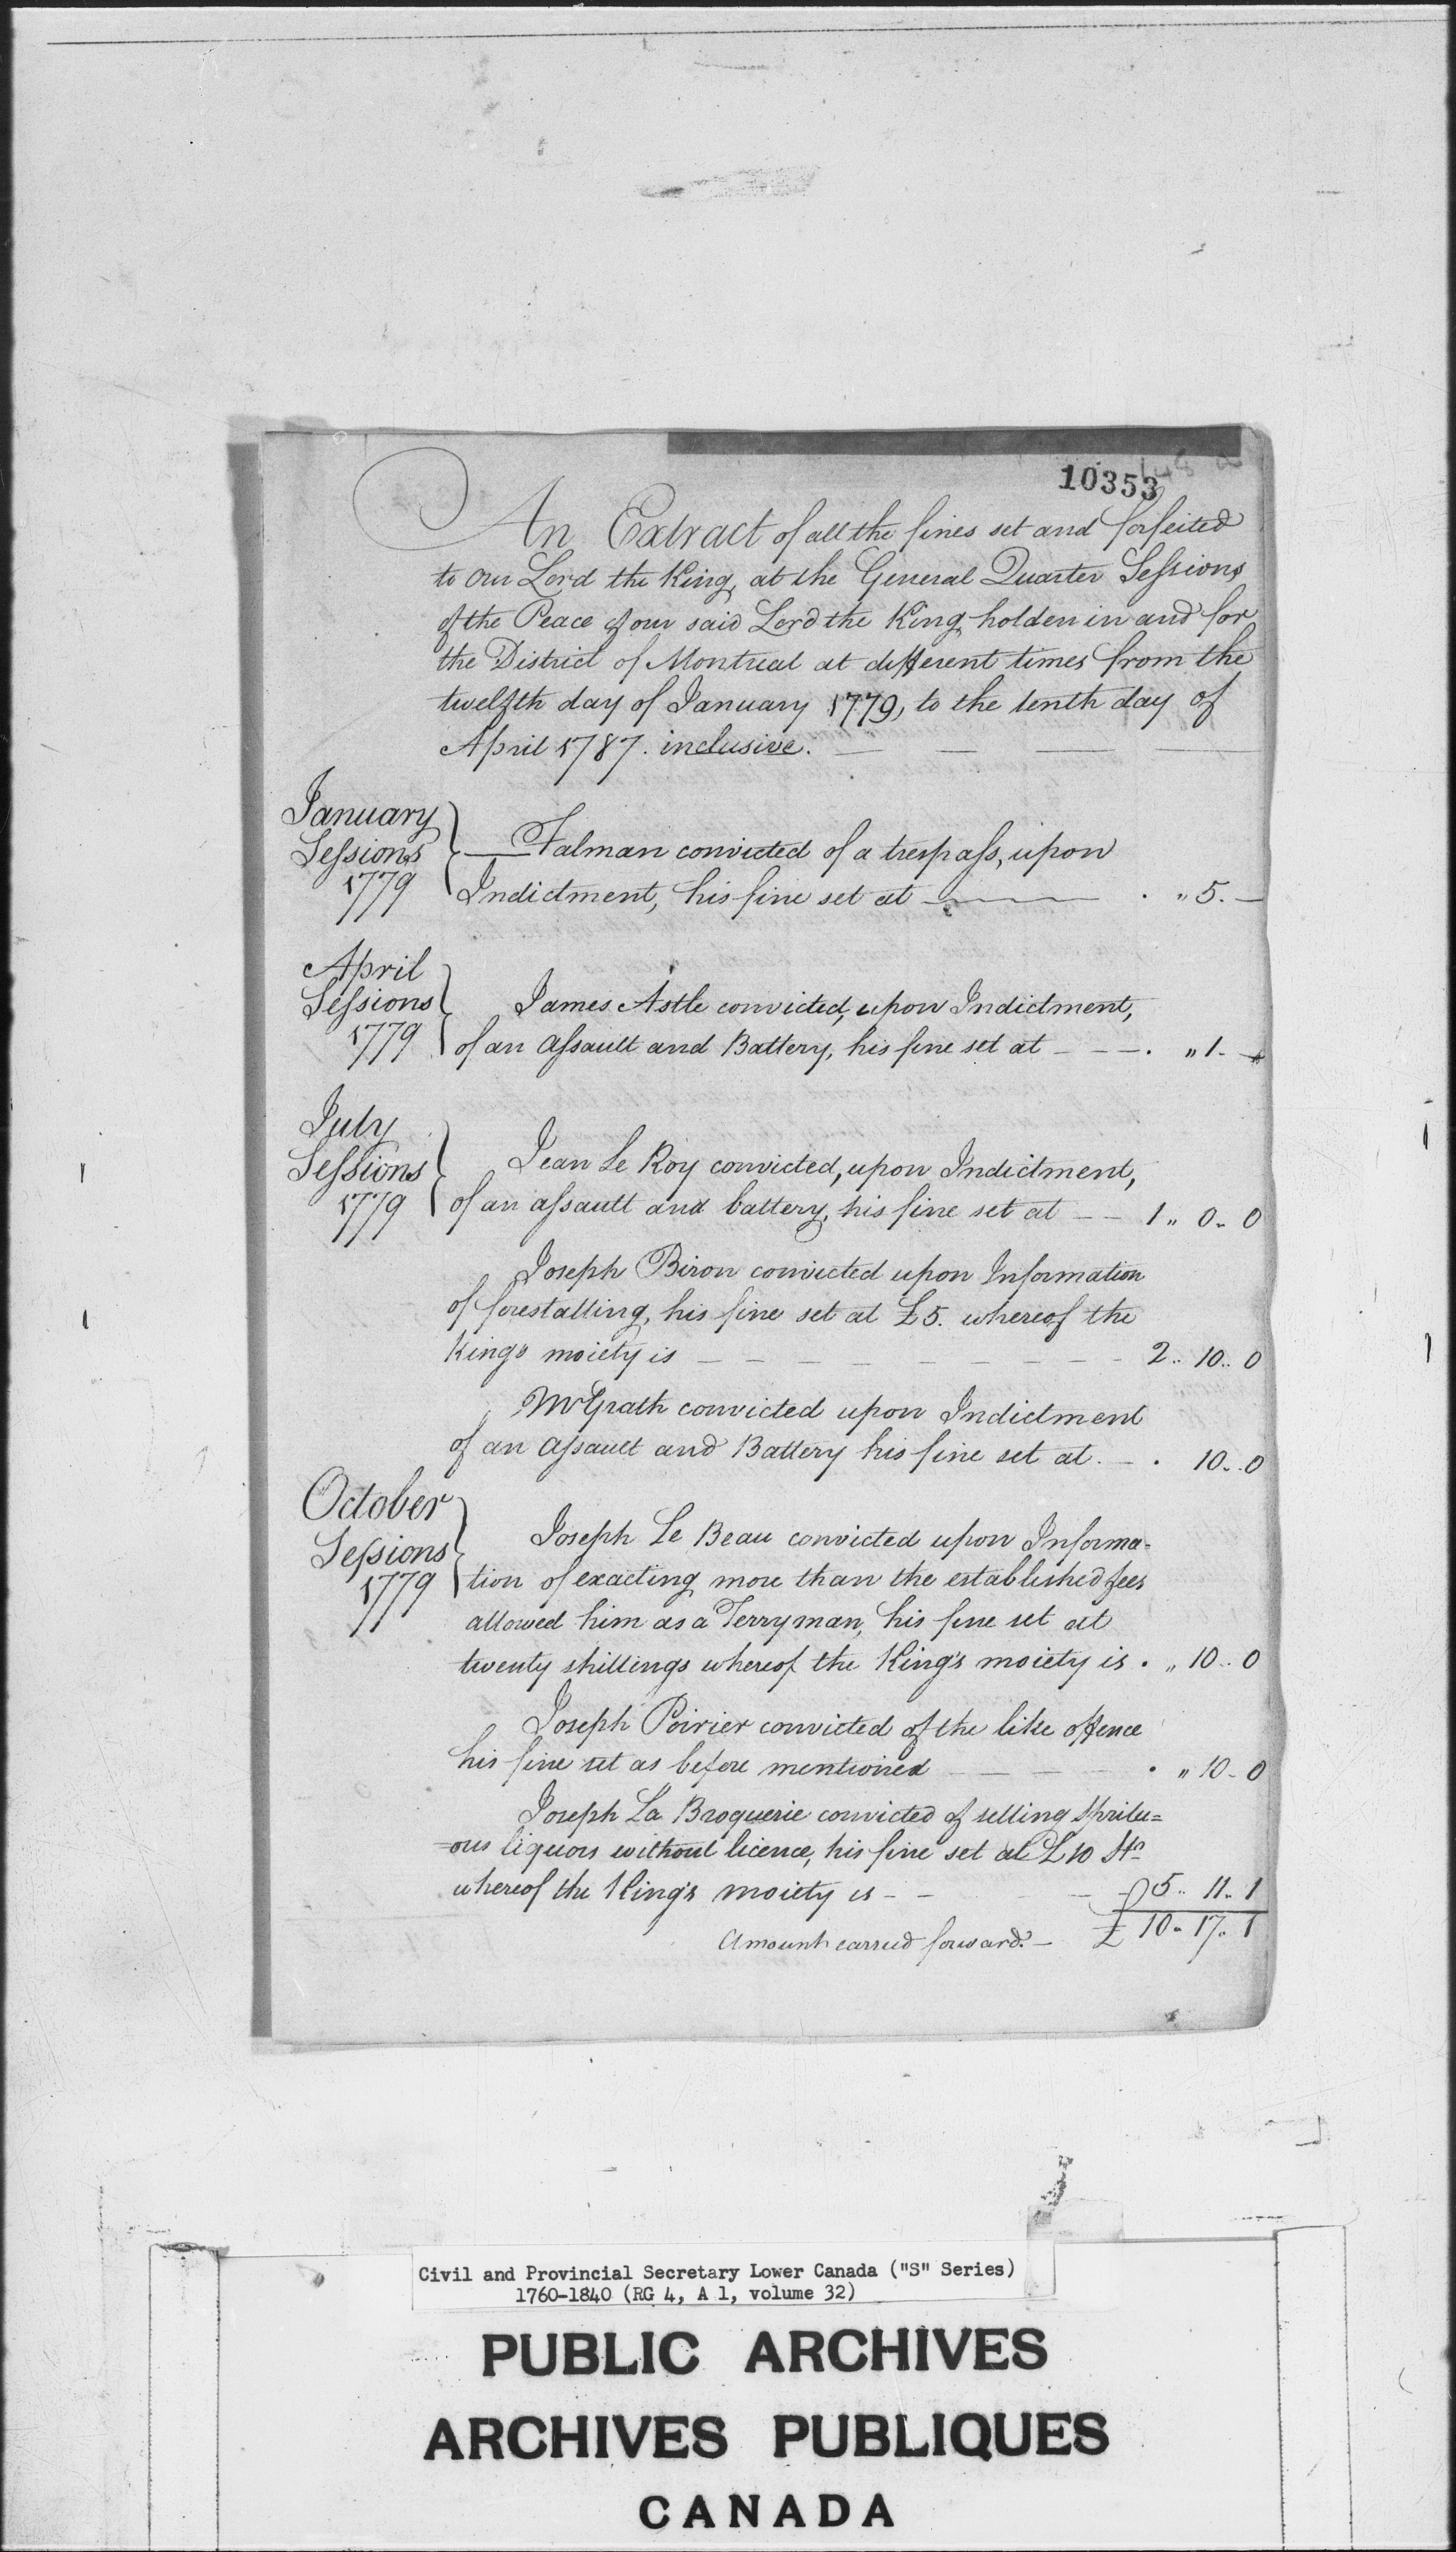 10353
An Extract of all the fines set and forfeited
to our Lord the King, at the General Quarter Sessions
of the Peace of our said Lord the King holden in and for
the District of Montreal at different times from the
twelfth day of January 1779, to the tenth day of
April 1787. inclusive. — — — —
January
Sessions
1779
— Falman convicted of a trespass, upon
Indictment, his fine set at — . „ 5. —
April
Sessions
1779
James Astle convicted, upon Indictment,
of an assault and Battery, his fine set at - - - . „ 1. -
July
Sessions
1779
Jean Le Roy convicted, upon Indictment,
of an assault and battery, his fine set at - - 1 „ 0 - 0
Joseph Biron convicted upon Information
of forestalling, his fine set at £5. whereof the
Kings moiety is - - - - - - - - - 2 .. 10 .. 0
McGrath convicted upon Indictment
of an assault and Battery his fine set at. - . 10 .. 0
October
Sessions
1779
Joseph Le Beau convicted upon Informa-
tion of exacting more than the established fees
allowed him as a Ferryman, his fine set at
twenty shillings whereof the King's moiety is . „ 10 .. 0
Joseph Poirier convicted of the like offence
his fine set as before mentioned - - - - . „ 10 - 0
Joseph La Broquerie convicted of selling Spritu=
=ous liquors without licence, his fine set at £10 Stg
whereof the King's moiety is - - - 5 .. 11 - 1
Amount carried forward. - £ 10 - 17 - 1
Civil and Provincial Secretary Lower Canada ("S" Series)
1760-1840 (RG 4, A 1, volume 32)
PUBLIC ARCHIVES
ARCHIVES PUBLIQUES
CANADA